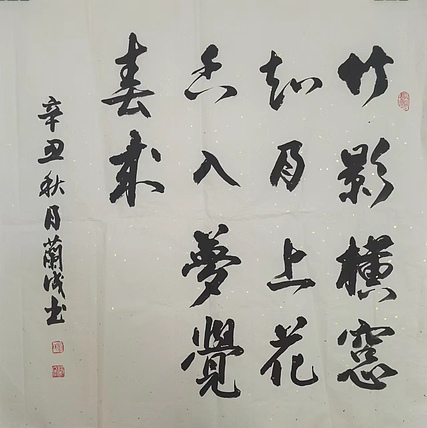 竹影橫窓
知月上花
香入夢覺
春来
辛丑秋月蘭成书